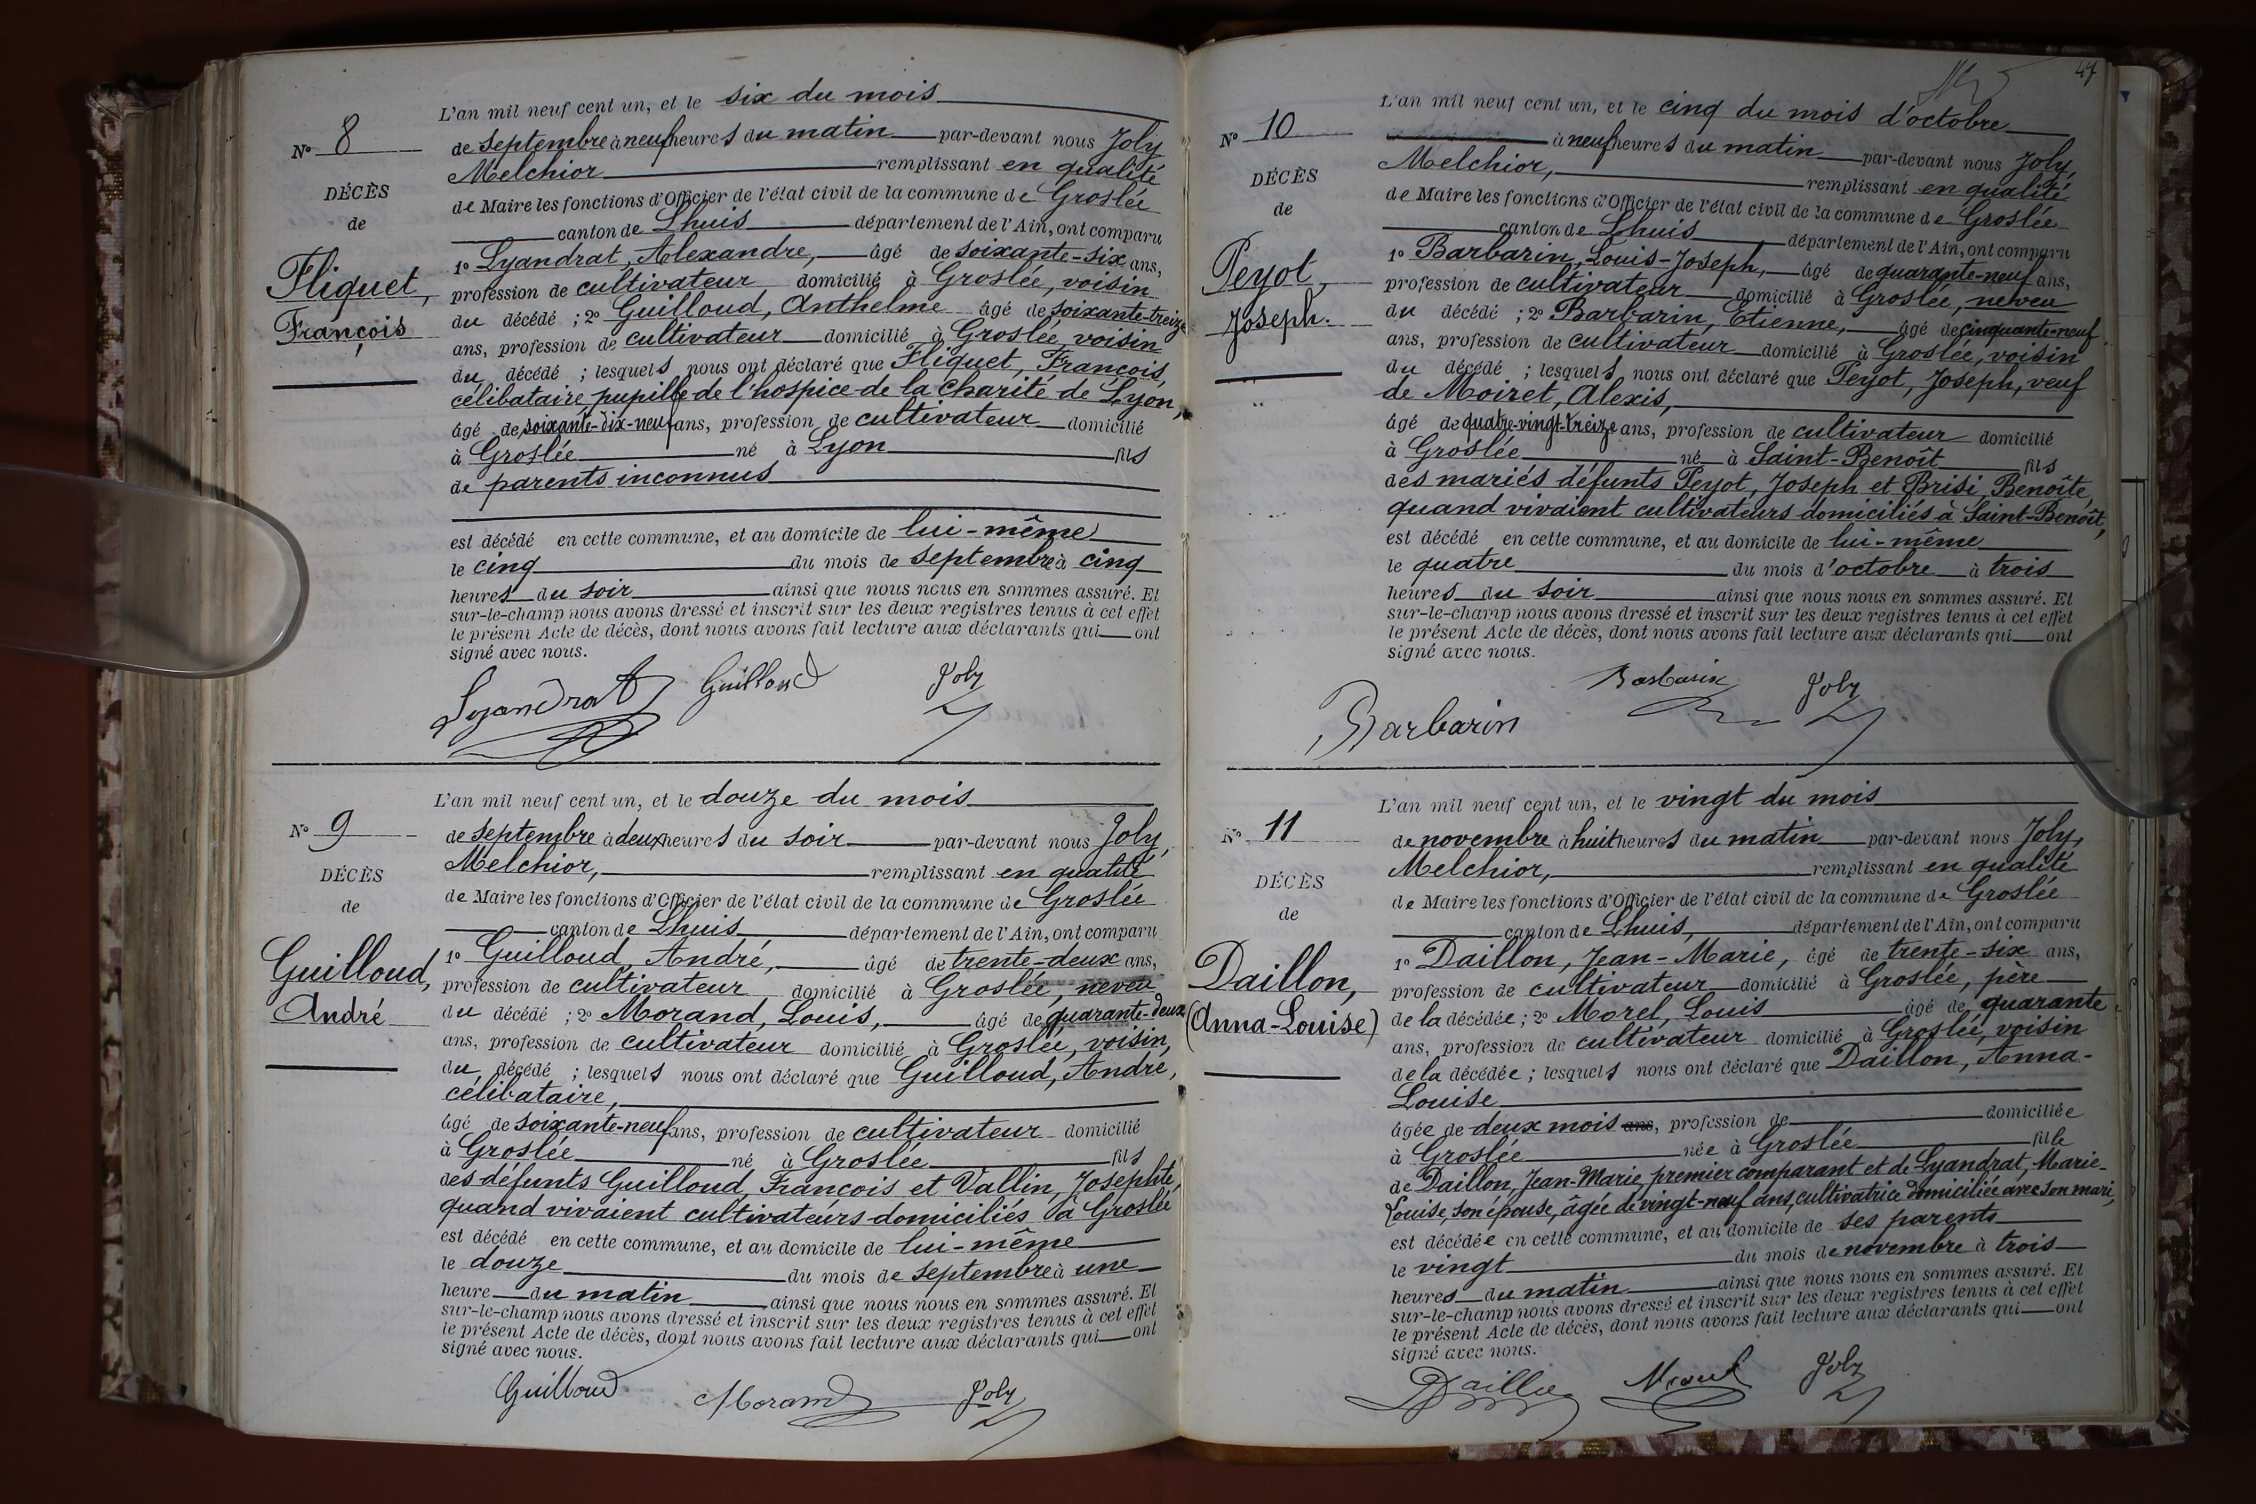 L'an mil neuf cent un, et le six du mois
N° 8
de septembre à neuf heures du matin par-devant nous Joly
Melchior remplissant en qualité
DÉCÈS
de Maire les fonctions d'Officier de l'état civil de la commune de Groslée
de
canton de Lhuis département de l'Ain, ont comparu
1° Lyandrat, Alexandre, âgé de soixante-six ans,
Fliquet,
profession de cultivateur domicilié à Groslée, voisin
François
du décédé ; 2° Guilloud, Anthelme âgé de soixante-treize
ans, profession de cultivateur domicilié à Groslée, voisin
du décédé ; lesquels nous ont déclaré que Fliquet, François,
célibataire, pupille de l'hospice de la Charité de Lyon,
âgé de soixante-dix-neuf ans, profession de cultivateur domicilié
à Groslée né à Lyon fils
de parents inconnus
est décédé en cette commune, et au domicile de lui-même
le cinq du mois de septembre à cinq
heures du soir ainsi que nous nous en sommes assuré. Et
sur-le-champ nous avons dressé et inscrit sur les deux registres tenus à cet effet
le présent Acte de décès, dont nous avons fait lecture aux déclarants qui ont
signé avec nous.
Lyandrat Guilloud Joly
L'an mil neuf cent un, et le douze du mois
N° 9
de septembre à deux heures du soir par-devant nous Joly,
Melchior, remplissant en qualité
DÉCÈS
de Maire les fonctions d'Officier de l'état civil de la commune de Groslée
de
canton de Lhuis département de l'Ain, ont comparu
Guilloud,
1° Guilloud, André, âgé de trente-deux ans,
profession de cultivateur domicilié à Groslée, neveu
André
du décédé ; 2° Morand, Louis, âgé de quarante-deux
ans, profession de cultivateur domicilié à Groslée, voisin,
du décédé ; lesquels nous ont déclaré que Guilloud, André,
célibataire,
âgé de soixante-neuf ans, profession de cultivateur domicilié
à Groslée né à Groslée fils
des défunts Guilloud, François et Vallin, Josephte,
quand vivaient cultivateurs domiciliés à Groslée
est décédé en cette commune, et au domicile de lui-même
le douze du mois de septembre à une
heure du matin ainsi que nous nous en sommes assuré. Et
sur-le-champ nous avons dressé et inscrit sur les deux registres tenus à cet effet
le présent Acte de décès, dont nous avons fait lecture aux déclarants qui ont
signé avec nous.
Guilloud Morand Joly
47
L'an mil neuf cent un, et le cinq du mois d'octobre
N° 10
à neuf heures du matin par-devant nous Joly,
Melchior, remplissant en qualité
DÉCÈS
de Maire les fonctions d'Officier de l'état civil de la commune de Groslée
de
canton de Lhuis département de l'Ain, ont comparu
Peyot,
1° Barbarin, Louis-Joseph, âgé de quarante-neuf ans,
profession de cultivateur domicilié à Groslée, neveu
Joseph.
du décédé ; 2° Barbarin, Etienne, âgé de cinquante-neuf
ans, profession de cultivateur domicilié à Groslée, voisin
du décédé ; lesquels nous ont déclaré que Peyot, Joseph, veuf
de Moiret, Alexis,
âgé de quatre-vingt-treize ans, profession de cultivateur domicilié
à Groslée né à Saint-Benoît fils
des mariés défunts Peyot, Joseph et Brisi, Benoîte,
quand vivaient cultivateurs domiciliés à Saint-Benoît,
est décédé en cette commune, et au domicile de lui-même
le quatre du mois d'octobre à trois
heures du soir ainsi que nous nous en sommes assuré. Et
sur-le-champ nous avons dressé et inscrit sur les deux registres tenus à cet effet
le présent Acte de décès, dont nous avons fait lecture aux déclarants qui ont
signé avec nous.
Barbarin Barbarin Joly
L'an mil neuf cent un, et le vingt du mois
N° 11
de novembre à huit heures du matin par-devant nous Joly,
Melchior, remplissant en qualité
DÉCÈS
de Maire les fonctions d'Officier de l'état civil de la commune de Groslée
de
canton de Lhuis, département de l'Ain, ont comparu
Daillon,
1° Daillon, Jean-Marie, âgé de trente-six ans,
profession de cultivateur domicilié à Groslée, père
(Anna-Louise)
de la décédée ; 2° Morel, Louis âgé de quarante
ans, profession de cultivateur domicilié à Groslée, voisin
de la décédée ; lesquels nous ont déclaré que Daillon, Anna-
Louise
âgée de deux mois ans, profession de domiciliée
à Groslée née à Groslée fille
de Daillon, Jean-Marie, premier comparant et de Lyandrat, Marie-
Louise, son épouse, âgée de vingt-neuf ans, cultivatrice domiciliée avec son mari,
est décédée en cette commune, et au domicile de ses parents
le vingt du mois de novembre à trois
heures du matin ainsi que nous nous en sommes assuré. Et
sur-le-champ nous avons dressé et inscrit sur les deux registres tenus à cet effet
le présent Acte de décès, dont nous avons fait lecture aux déclarants qui ont
signé avec nous.
Daillon Morel Joly